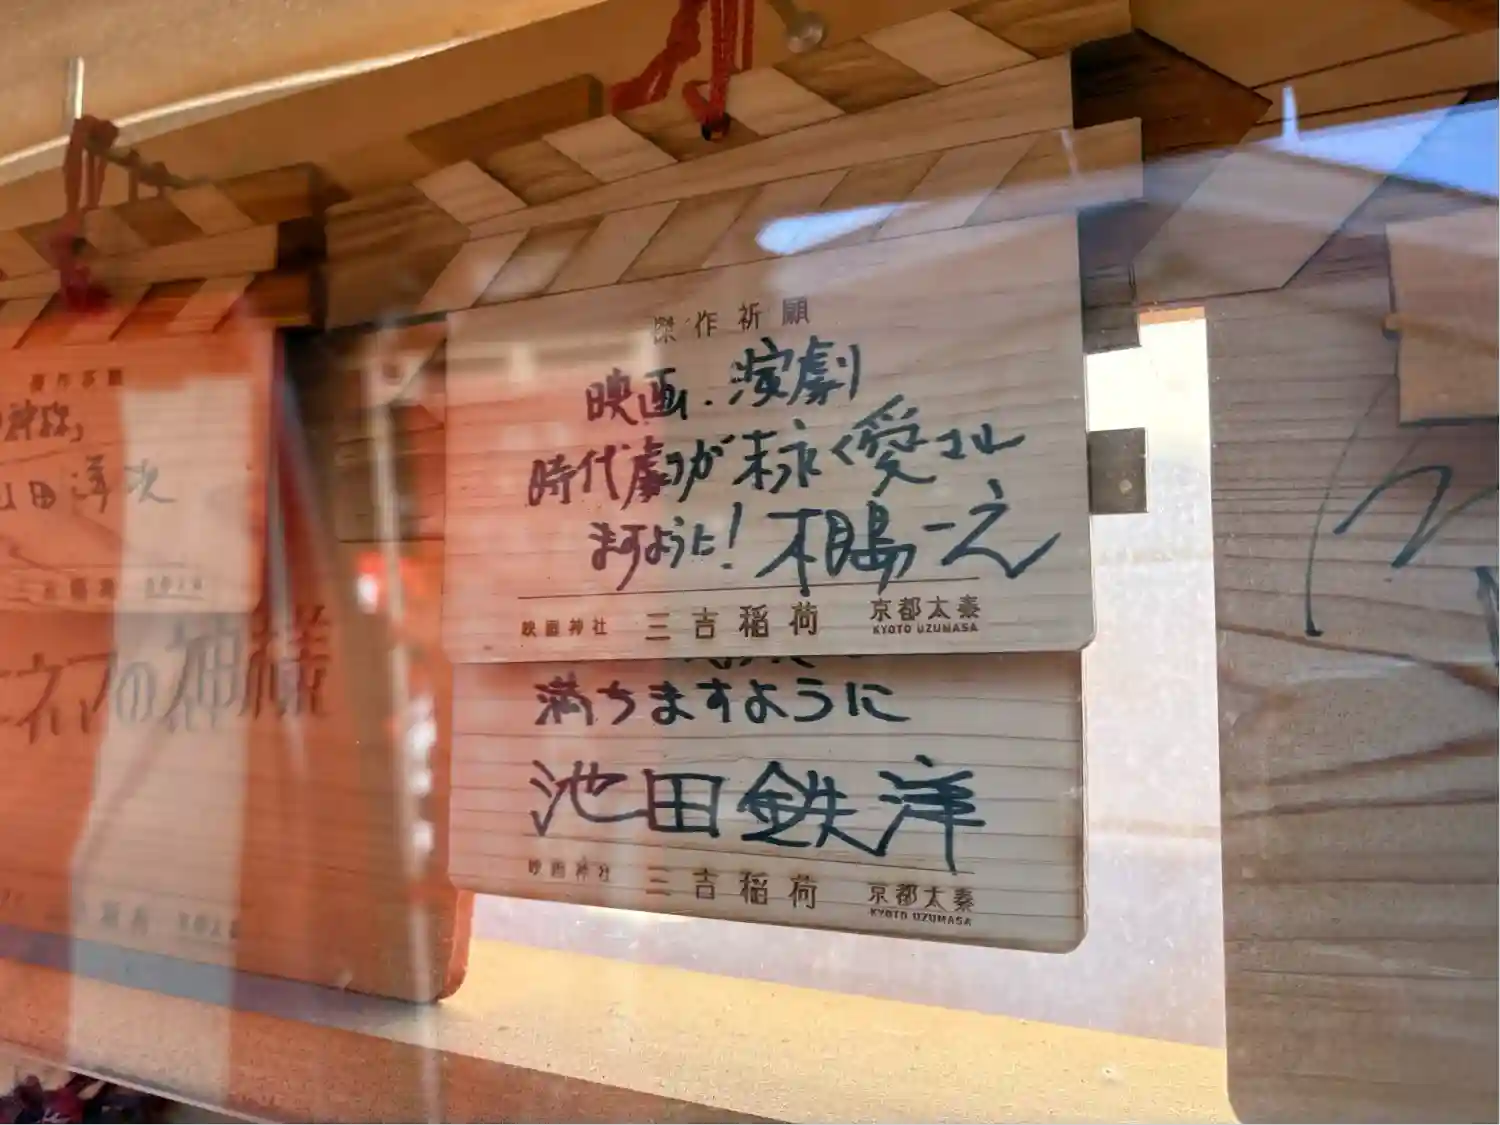 傑作祈願
映画.演劇
時代劇が末永く愛され
ますように! 相島一之
映画神社 三吉稲荷 京都太秦
KYOTO UZUMASA
満ちますように
池田鉄洋
映画神社 三吉稲荷 京都太秦
KYOTO UZUMASA
傑作祈願
神様」
山田洋次
ネマの神様